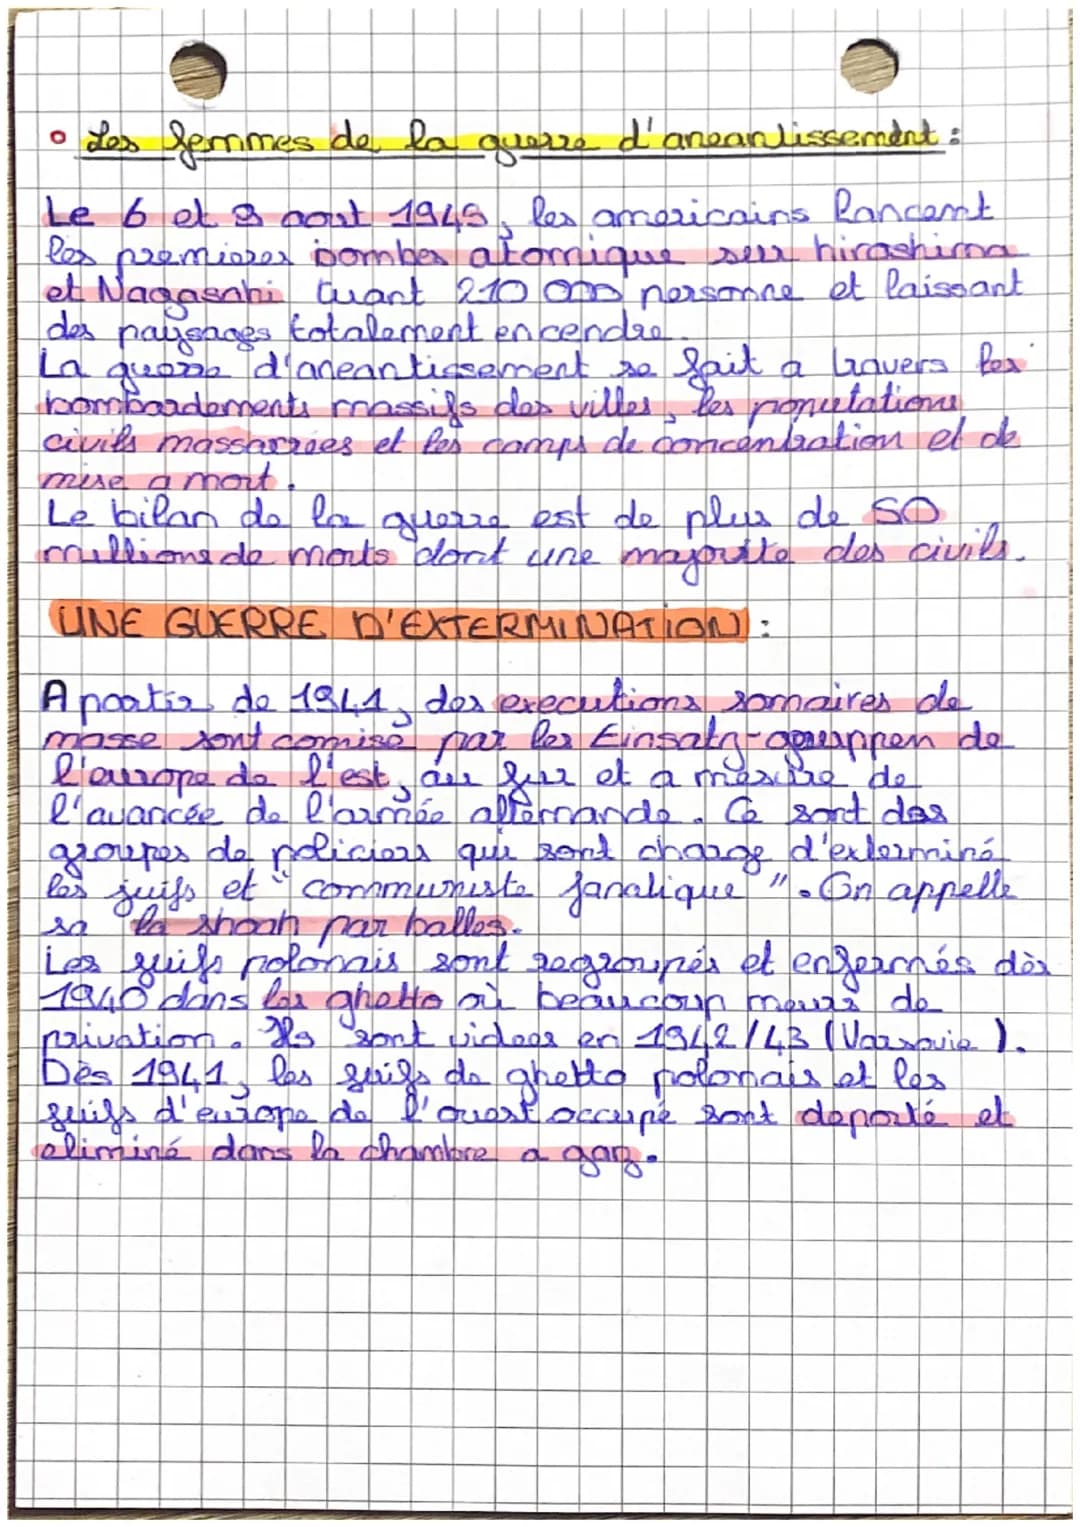 ° Les femmes de la guerre d'aneantissement :
Le 6 et 9 aout 1945, les americains lancent
les premieres bombes atomique sur hiroshima
et Nagasaki tuant 210 000 personne et laissant
des paysages totalement en cendre.
La guerre d'aneantissement se fait a travers les
bombardements massifs des villes, les populations
civils massacrées et les camps de concentration et de
mise a mort.
Le bilan de la guerre est de plus de 50
millions de morts dont une majorite des civils.
UNE GUERRE D'EXTERMINATION :
A partir de 1941, des executions somaires de
masse sont comise par les Einsatz-gruppen de
l'europe de l'est, au fur et a mesure de
l'avancée de l'armée allemande. Ce sont des
groupes de policiers qui sont charge d'exterminé
les juifs et "communiste fanatique". On appelle
sa la shoah par balles.
Les juifs polonais sont regroupés et enfermés dès
1940 dans les ghetto où beaucoup meurs de
privation. Ils sont videes en 1942/43 (Varsovie).
Dès 1941, les juifs de ghetto polonais et les
juifs d'europe de l'ouest occupé sont deporté et
eliminé dans la chambre a gaz.